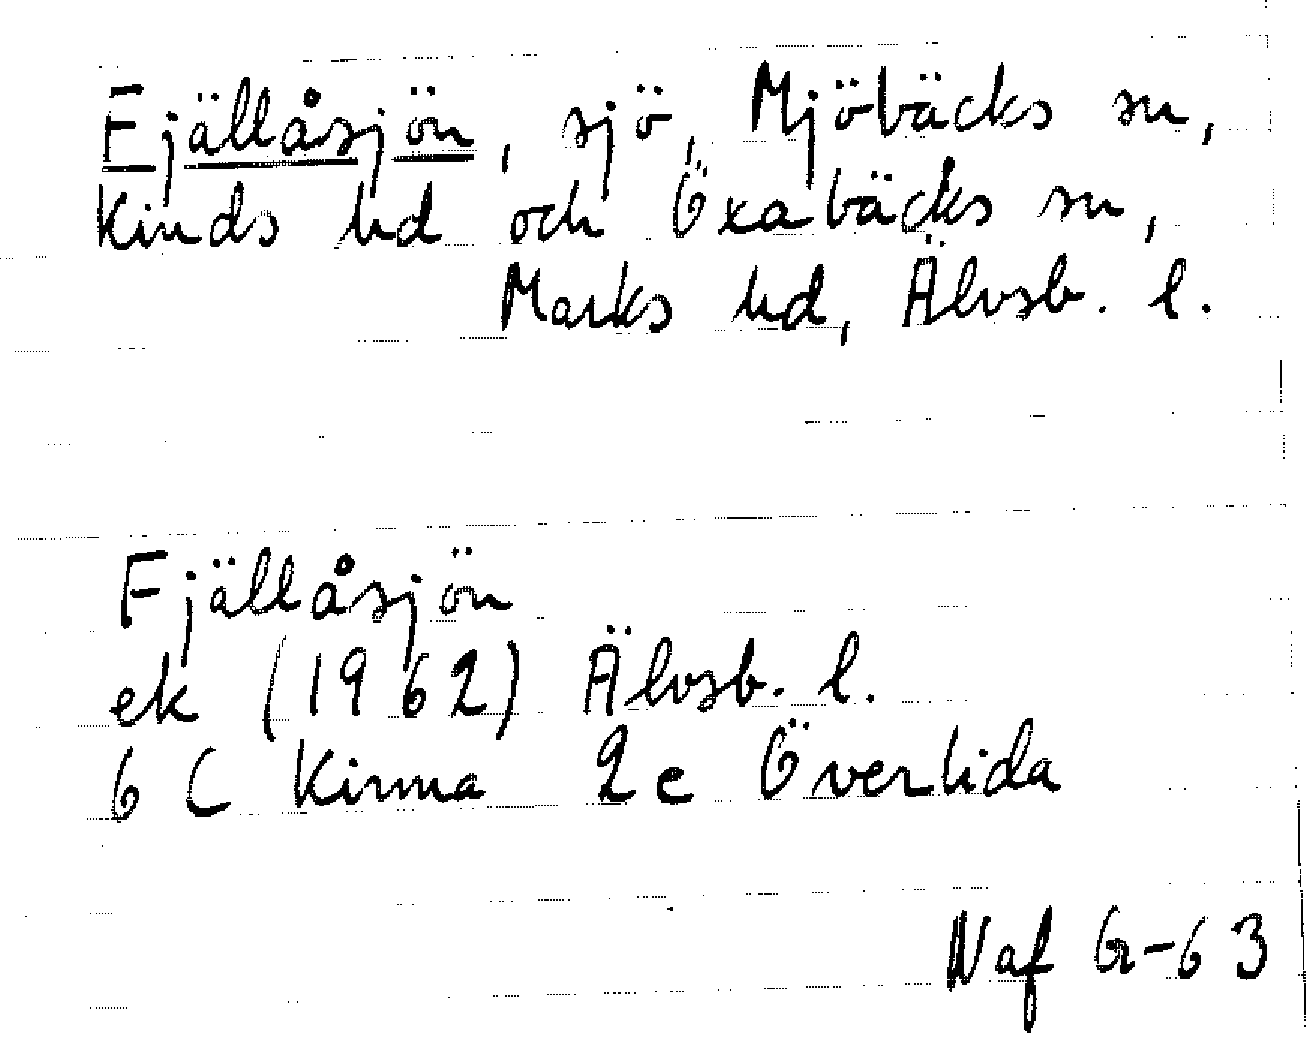 Fjällåsjön, sjö, Mjöbäcks sn,
Kinds hd och Öxabäcks sn,
Marks hd, Älvsb. l.
Fjällåsjön
ek (1962) Älvsb. l.
6 C Kinna 2e Överlida
Naf G-63